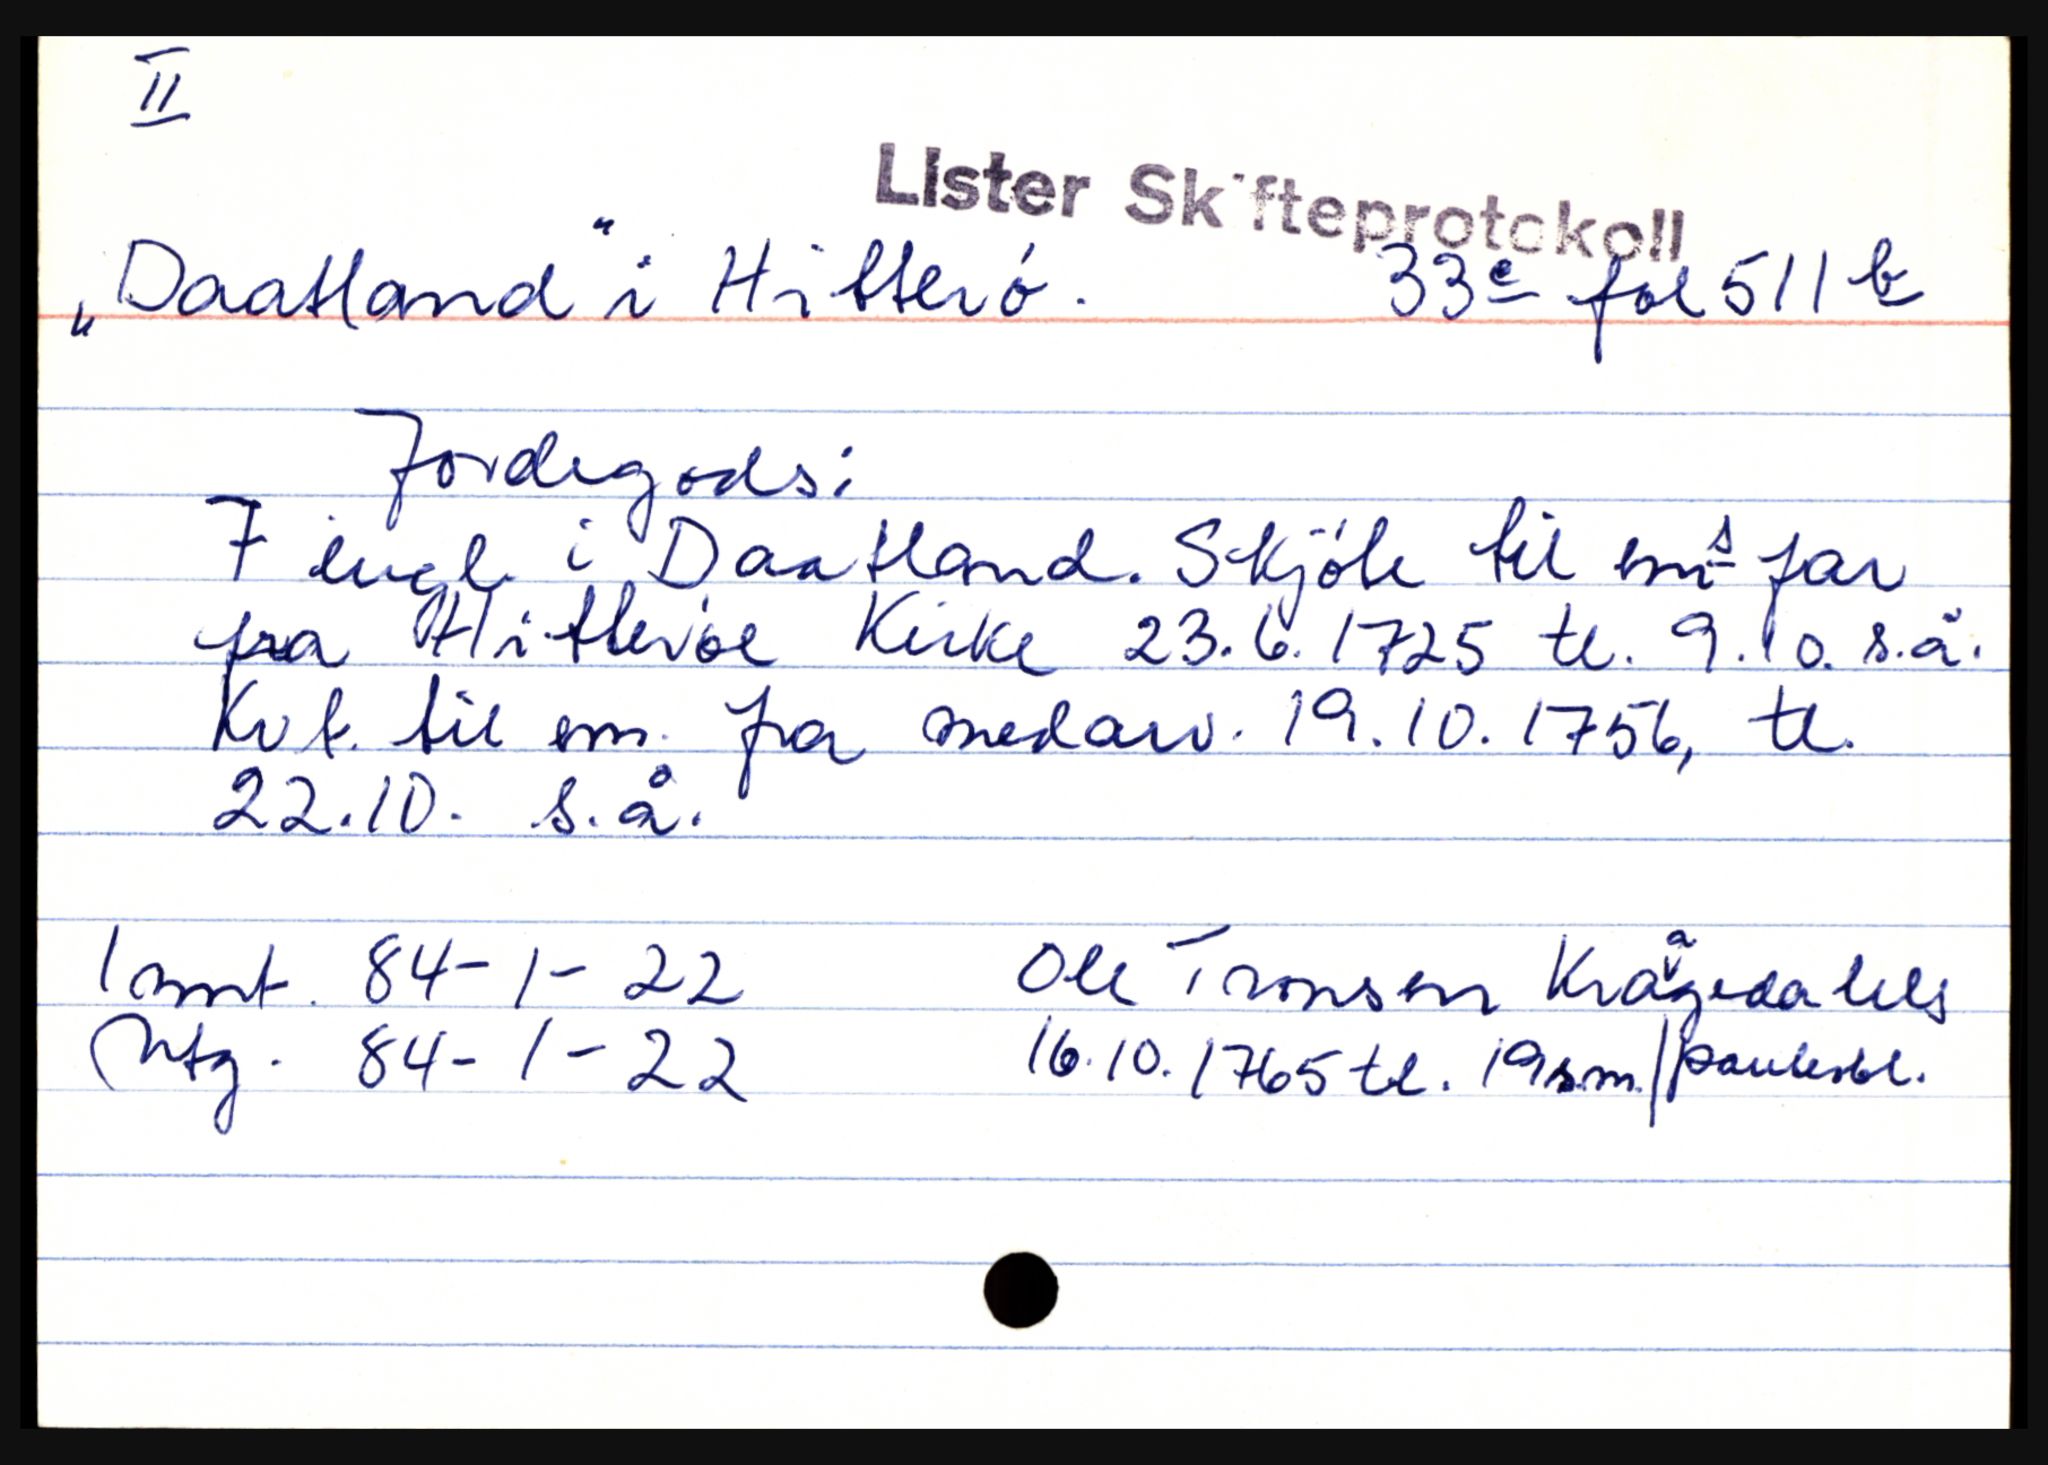 II
Lister Skifteprotokoll
„Daatland" i Hitterö. 33c fol 511 b
Jordegods:
7 engl. i Daatland. Skjöte til ems far
fra Hitteröe Kirke 23.6.1725 tl. 9.10. s.å.
Kvt. til em. fra medarv. 19.10.1756, tl.
22.10. s.å.
Innt. 84-1-22 Ole Tronsen Krågedals
Utg. 84-1-22 16.10.1765 tl. 19 s.m. pantobl.